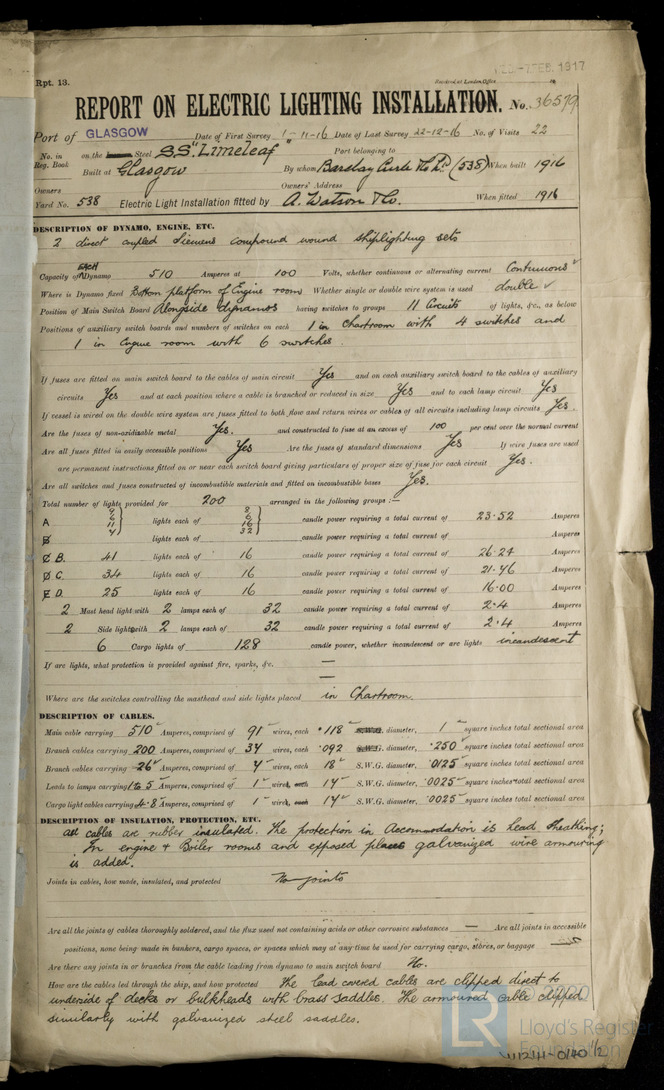 Rpt. 13.
FEB. 1917
Received at London Office
REPORT ON ELECTRIC LIGHTING INSTALLATION. No. 36579
Port of GLASGOW Date of First Survey 1-11-16 Date of Last Survey 22-12-16 No. of Visits 22
No. in Reg. Book on the Steel S.S. "Limeleaf" Port belonging to
Built at Glasgow By whom Barclay Curle & Co Ld (538) When built 1916
Owners Owners' Address
Yard No. 538 Electric Light Installation fitted by A. Watson & Co. When fitted 1916
DESCRIPTION OF DYNAMO, ENGINE, ETC.
2 direct coupled Siemens compound wound shiplighting sets
Capacity of EACH Dynamo 510 Amperes at 100 Volts, whether continuous or alternating current Continuous
Where is Dynamo fixed Bottom platform of Engine room Whether single or double wire system is used double
Position of Main Switch Board Alongside dynamos having switches to groups 11 Circuits of lights, &c., as below
Positions of auxiliary switch boards and numbers of switches on each 1 in Chartroom with 4 switches and
1 in Engine room with 6 switches
If fuses are fitted on main switch board to the cables of main circuit Yes and on each auxiliary switch board to the cables of auxiliary
circuits Yes and at each position where a cable is branched or reduced in size Yes and to each lamp circuit Yes
If vessel is wired on the double wire system are fuses fitted to both flow and return wires or cables of all circuits including lamp circuits Yes.
Are the fuses of non-oxidizable metal Yes. and constructed to fuse at an excess of 100 per cent over the normal current
Are all fuses fitted in easily accessible positions Yes Are the fuses of standard dimensions Yes If wire fuses are used
are permanent instructions fitted on or near each switch board giving particulars of proper size of fuse for each circuit Yes.
Are all switches and fuses constructed of incombustible materials and fitted on incombustible bases Yes.
Total number of lights provided for 200 arranged in the following groups :—
A 11 4 lights each of 16 32 candle power requiring a total current of 23.52 Amperes
B lights each of candle power requiring a total current of Amperes
C B. 41 lights each of 16 candle power requiring a total current of 26.24 Amperes
D C. 34 lights each of 16 candle power requiring a total current of 21.46 Amperes
E D. 25 lights each of 16 candle power requiring a total current of 16.00 Amperes
2 Mast head light with 2 lamps each of 32 candle power requiring a total current of 2.4 Amperes
2 Side light with 2 lamps each of 32 candle power requiring a total current of 2.4 Amperes
6 Cargo lights of 128 candle power, whether incandescent or arc lights incandescent
If arc lights, what protection is provided against fire, sparks, &c. —
—
Where are the switches controlling the masthead and side lights placed in Chartroom.
DESCRIPTION OF CABLES.
Main cable carrying 510 Amperes, comprised of 91 wires, each .118 S.W.G. diameter, 1 square inches total sectional area
Branch cables carrying 200 Amperes, comprised of 37 wires, each .092 S.W.G. diameter, .250 square inches total sectional area
Branch cables carrying 26 Amperes, comprised of 7 wires, each 18 S.W.G. diameter, .0125 square inches total sectional area
Leads to lamps carrying 1 to 5 Amperes, comprised of 1 wires, each 17 S.W.G. diameter, .0025 square inches total sectional area
Cargo light cables carrying 4.8 Amperes, comprised of 1 wires, each 17 S.W.G. diameter, .0025 square inches total sectional area
DESCRIPTION OF INSULATION, PROTECTION, ETC.
all cables are rubber insulated. The protection in Accomodation is lead sheathing;
In engine & Boiler rooms and exposed places galvanized wire armouring
is added.
Joints in cables, how made, insulated, and protected No joints
Are all the joints of cables thoroughly soldered, and the flux used not containing acids or other corrosive substances — Are all joints in accessible
positions, none being made in bunkers, cargo spaces, or spaces which may at any time be used for carrying cargo, stores, or baggage —
Are there any joints in or branches from the cable leading from dynamo to main switch board No.
How are the cables led through the ship, and how protected The lead covered cables are clipped direct to
underside of decks or bulkheads with brass saddles. The armoured cable clipped
similarly with galvanized steel saddles.
LR
Lloyd's Register
Foundation
W1241-0140 1/2